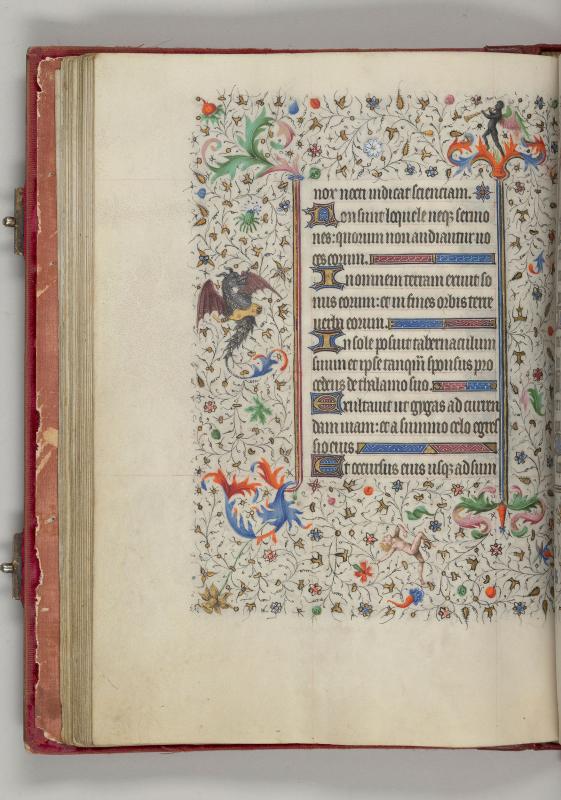 nox nocti indicat scienciam.
Non sunt loquele neqz sermo
nes: quorum non audiantur uo
ces eorum.
In omnem terram exiuit so
nus eorum: et in fines orbis terre
uerba eorum.
In sole posuit tabernaculum
suum et ipse tanquã sponsus pro
cedens de thalamo suo.
Exultauit ut gygas ad curren
dam uiam: et a summo celo egres
sio eius.
Et occursus eius usqz ad sum